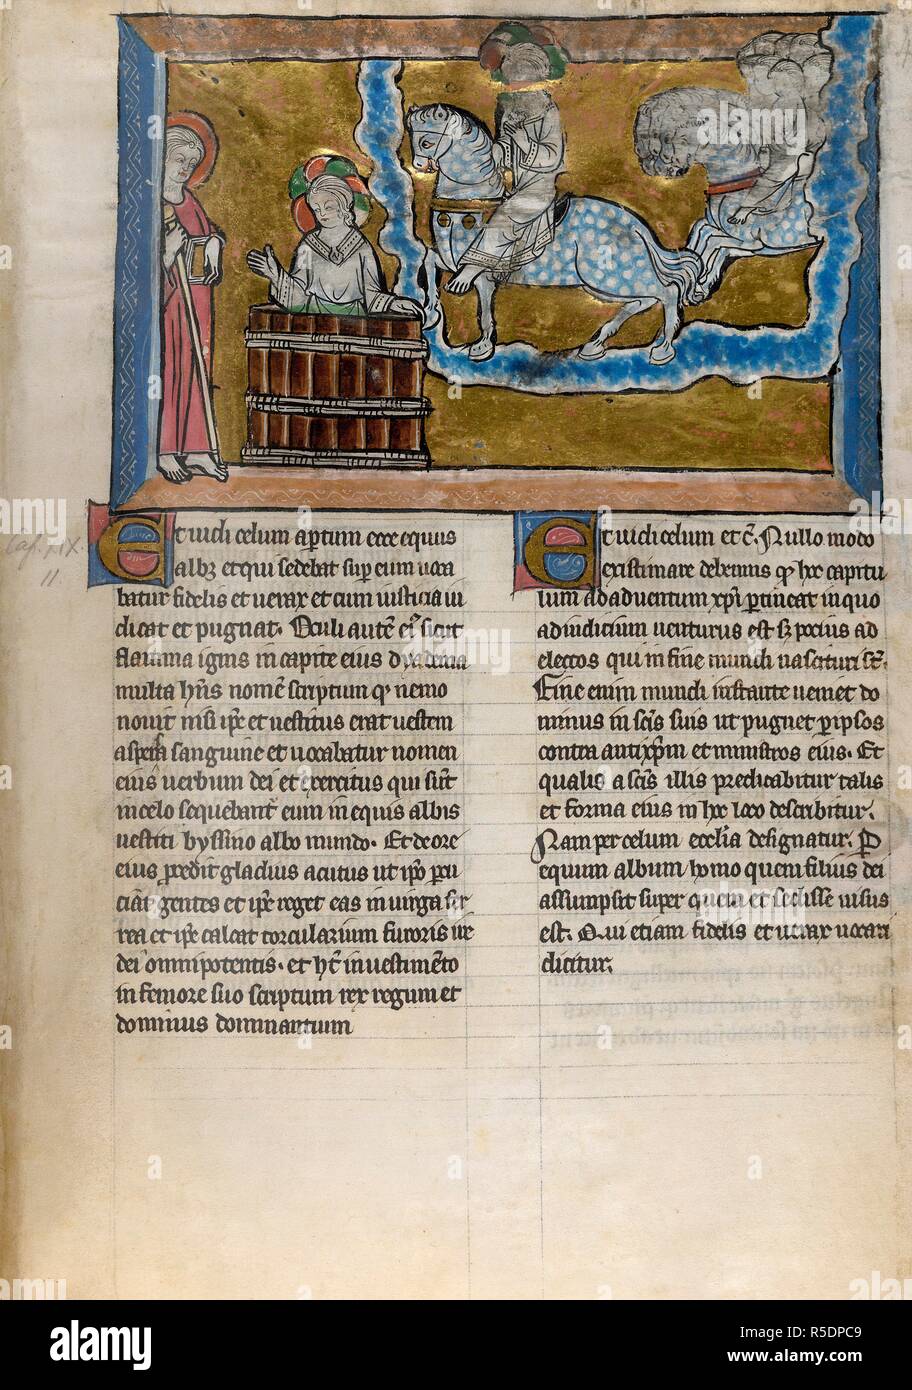 Cap. XIX.
11.
Et uidi celum aptum ecce equus
albꝫ et qui sedebat sup eum uoca
batur fidelis et uerax et cum iusticia iu
dicat et pugnat. Oculi autē eiꝰ sicut
flamma ignis in capite eius dyadema
multa hn̄s nomē scriptum qͦ nemo
nouit nisi ip̄e et uestitus erat uestem
aspersā sanguine et uocabatur nomen
eius uerbum dei et exercitus qui sūt
in celo sequebant̄ eum in equis albis
uestiti byssino albo mundo. Et de ore
eius p̄cedit gladius acutus ut ip̄o pcu
ciāt gentes et ip̄e reget eas in uirga fer
rea et ip̄e calcat torcularium furoris ire
dei omnipotentis. et hꝫ in uestimēto
in femore suo scriptum rex regum et
dominus dominantium
Et uidi celum et cͣ. Nullo modo
existimare debemus qͦ hec capitu
lum ad aduentum xp̄i ptineat in quo
ad iudicium uenturus est sꝫ pocius ad
electos qui in fine mundi nascituri st̄.
Fine enim mundi instante ueniet do
minus in sc̄is suis ut pugnet p ipsos
contra antixp̄m et ministros eius. Et
qualis a sc̄is illis predicabitur talis
et forma eius in hoc loco describitur.
Nam per celum ecclīa designatur. P
equum album homo quem filius dei
assumpsit super quem et sedisse uisus
est. Qui etiam fidelis et uerax uocari
dicitur.
alamy
Image ID: R5DPC9
www.alamy.com